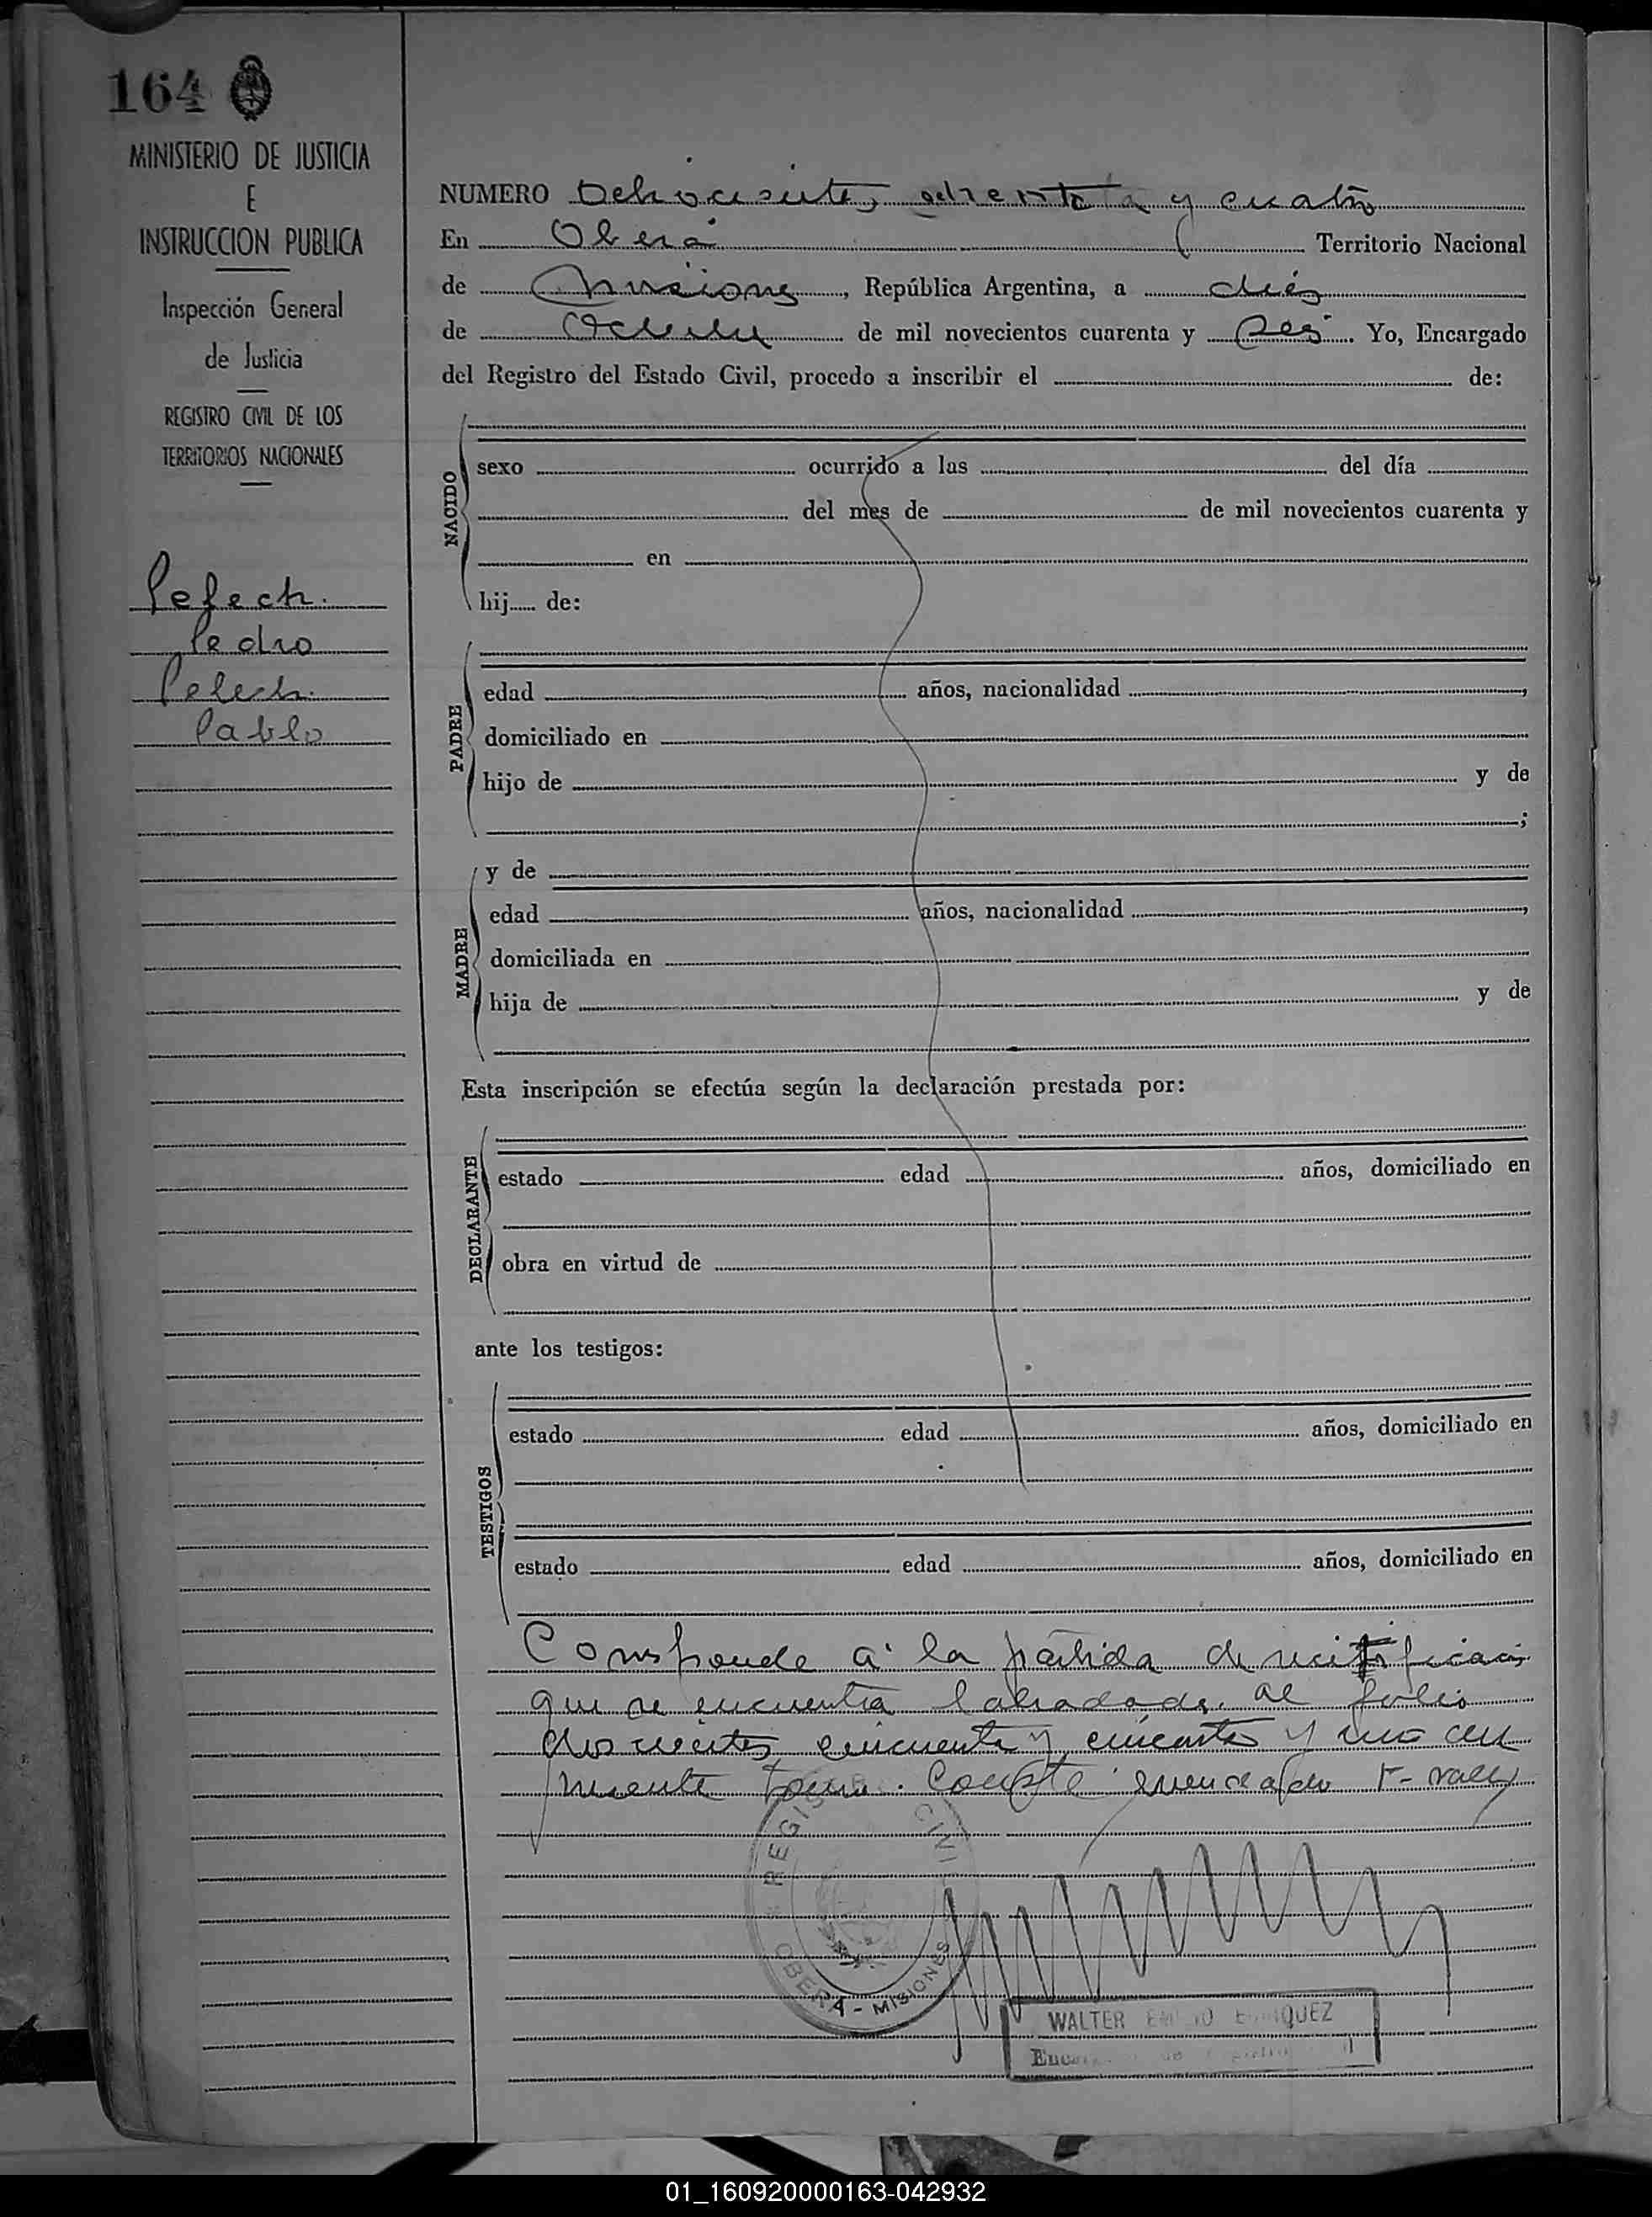 164
MINISTERIO DE JUSTICIA
E
INSTRUCCION PUBLICA
Inspección General
de Justicia
REGISTRO CIVIL DE LOS
TERRITORIOS NACIONALES
Pelech.
Pedro
Pelech.
Pablo
NUMERO y cuatro
En Oberá Territorio Nacional
de Misiones, República Argentina, a diés
de Octubre de mil novecientos cuarenta y seis. Yo, Encargado
del Registro del Estado Civil, procedo a inscribir el de:
NACIDO
sexo ocurrido a las del día
del mes de de mil novecientos cuarenta y
en
hij de:
PADRE
edad años, nacionalidad ,
domiciliado en
hijo de y de
;
MADRE
y de
edad años, nacionalidad ,
domiciliada en
hija de y de
Esta inscripción se efectúa según la declaración prestada por:
DECLARANTE
estado edad años, domiciliado en
obra en virtud de
ante los testigos:
TESTIGOS
estado edad años, domiciliado en
estado edad años, domiciliado en
Corresponde a la partida de
que se encuentra al folio
cincuenta y y uno
REGIS CIVI
OBERA - MISIONES
WALTER
01_160920000163-042932